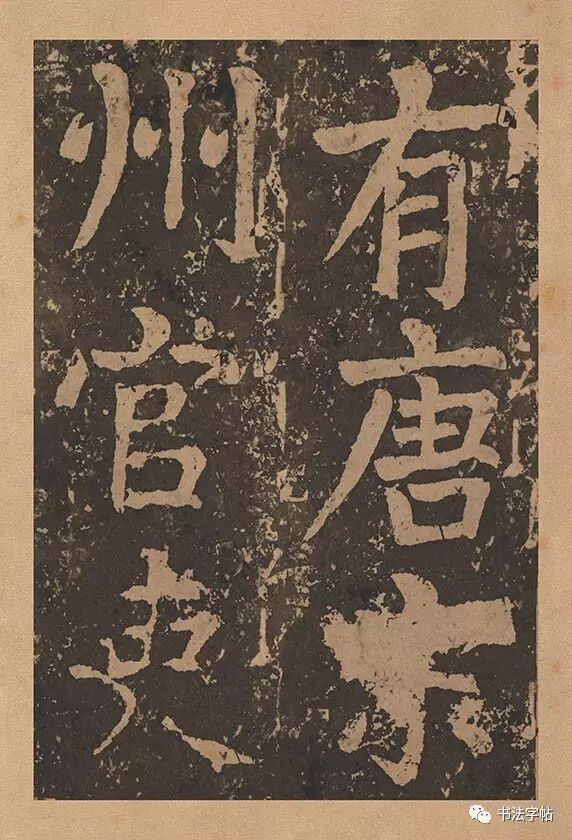 有唐宋
州官吏
书法字帖